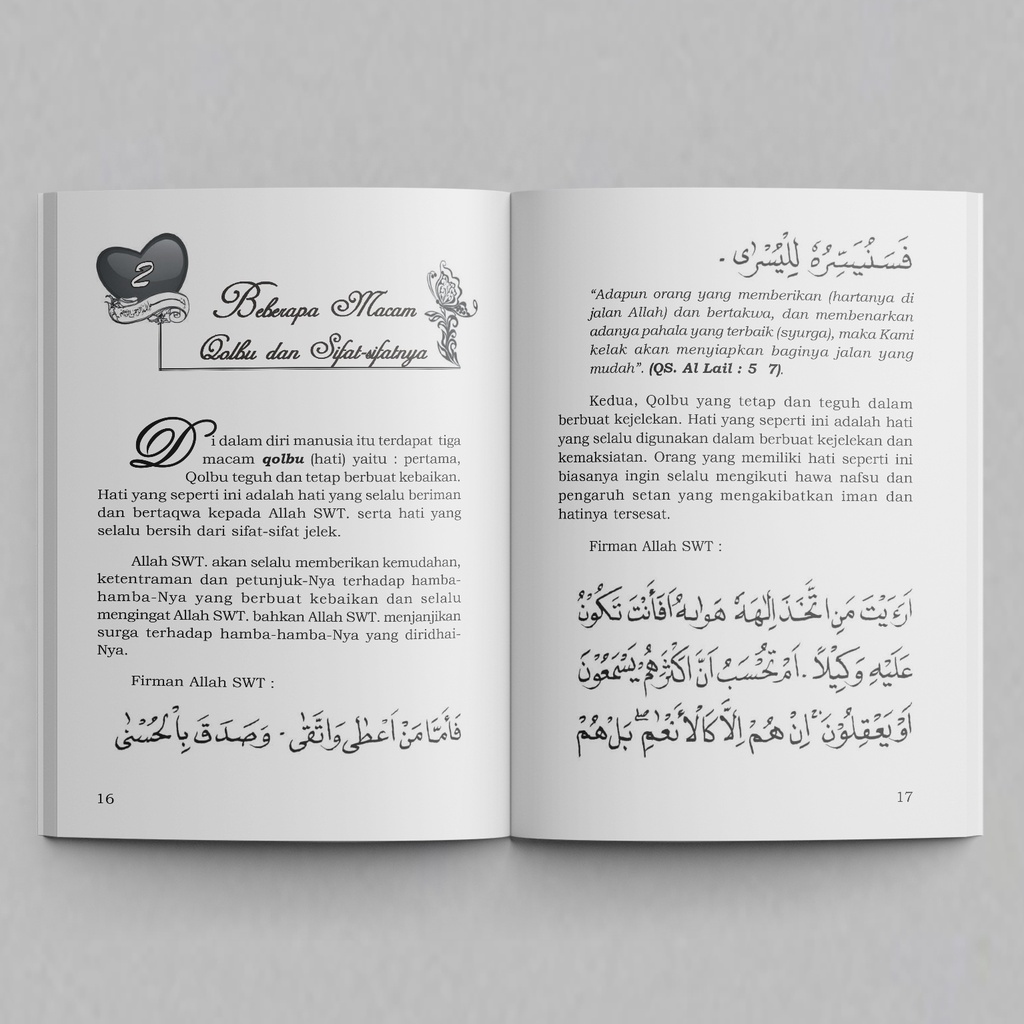 2
Beberapa Macam
Qolbu dan Sifat-sifatnya
Di dalam diri manusia itu terdapat tiga
macam qolbu (hati) yaitu : pertama,
Qolbu teguh dan tetap berbuat kebaikan.
Hati yang seperti ini adalah hati yang selalu beriman
dan bertaqwa kepada Allah SWT. serta hati yang
selalu bersih dari sifat-sifat jelek.
Allah SWT. akan selalu memberikan kemudahan,
ketentraman dan petunjuk-Nya terhadap hamba-
hamba-Nya yang berbuat kebaikan dan selalu
mengingat Allah SWT. bahkan Allah SWT. menjanjikan
surga terhadap hamba-hamba-Nya yang diridhai-
Nya.
Firman Allah SWT :
فَأَمَّا مَنْ اَعْطٰى وَاتَّقٰى . وَصَدَقَ بِالْحُسْنٰى
16
فَسَنُيَسِّرُهُ لِلْيُسْرٰى .
“Adapun orang yang memberikan (hartanya di
jalan Allah) dan bertakwa, dan membenarkan
adanya pahala yang terbaik (syurga), maka Kami
kelak akan menyiapkan baginya jalan yang
mudah”. (QS. Al Lail : 5 7).
Kedua, Qolbu yang tetap dan teguh dalam
berbuat kejelekan. Hati yang seperti ini adalah hati
yang selalu digunakan dalam berbuat kejelekan dan
kemaksiatan. Orang yang memiliki hati seperti ini
biasanya ingin selalu mengikuti hawa nafsu dan
pengaruh setan yang mengakibatkan iman dan
hatinya tersesat.
Firman Allah SWT :
اَرَءَيْتَ مَنِ اتَّخَذَ اِلٰهَهُ هَوٰىهُ اَفَأَنْتَ تَكُوْنُ
عَلَيْهِ وَكِيْلًا . اَمْ تَحْسَبُ اَنَّ اَكْثَرَهُمْ يَسْمَعُوْنَ
اَوْ يَعْقِلُوْنَ اِنْ هُمْ اِلَّا كَالْأَنْعٰمِ بَلْ هُمْ
17